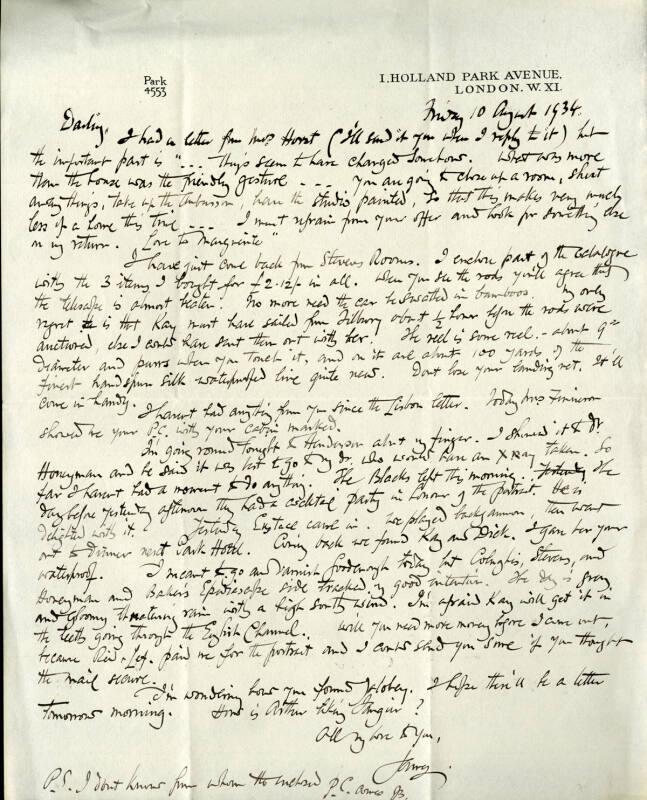 Park
4553
1, HOLLAND PARK AVENUE,
LONDON. W. XI.
Friday 10 August 1934.
Darling, I had a letter from Mrs Horst (I'll send it you when I reply to it) but
the important part is "... Things seem to have changed somehow. What was more
than the house was the friendly gesture ... You are going to close up a room, shut
away things, take up the Aubusson, have the studio painted, so that this makes very much
less of a love this time ... I must refrain from your offer and look for something else
on my return. Love to Marguerite"
I have just come back from Stevens Rooms. I enclose part of the catalogue
with the 3 items I bought for £2.12/- in all. When you see the rods you'll agree they
the telescope is almost better. No more need the car be swathed in bamboos. My only
regret is that Kay must have sailed from Tilbury about ½ hour before the rods were
auctioned, else I could have sent them out with her. The reel is some reel - about 9"
diameter and purrs when you touch it, and on it are about 100 yards of the
finest hand spun silk waterproofed line quite new. Dont lose your landing net. It'll
come in handy.
I havent had anything from you since the Lisbon letter. Today Mrs Finneron
showed me your P.C. with your cabin marked.
I'm going round tonight to Henderson about my finger. I showed it to Dr
Honeyman and he said it was best to go to my dr. who would have an X ray taken. So
far I havent had a moment to do anything. The Blacks left this morning. The
day before yesterday afternoon they had a cocktail party in honour of the portrait. He is
delighted with it. Yesterday Eustace came in. We played backgammon, then went
out to dinner next Park Hotel. Coming back we found Kay and Dick. I gave her your
waterproof. I meant to go and varnish Goodenough today but Colnaghis, Stevens, and
Honeyman and Baker's Epidiascope side tracked my good intention. The day is gray
and gloomy threatening rain with a high south wind. I'm afraid Kay will get it in
the teeth going through the English Channel. Will you need more money before I come out,
because Reid-Lef. paid me for the portrait and I could send you some if you thought
the mail secure.
I'm wondering how you found Toby. I hope there'll be a letter
tomorrow morning. How is Arthur liking Tangier?
All my love to you,
Jerry.
P.S. I dont know from whom the enclosed P.C. comes